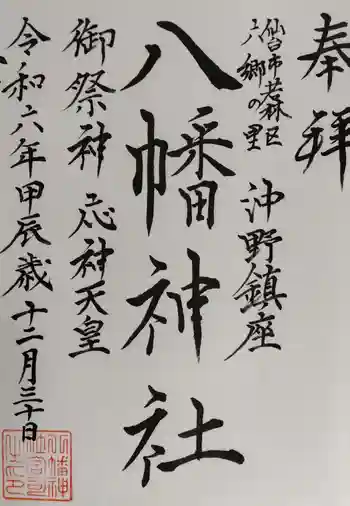 奉拝
仙台市若林区
六郷の里
沖野鎮座
八幡神社
御祭神 応神天皇
令和六年甲辰歳十二月三十日